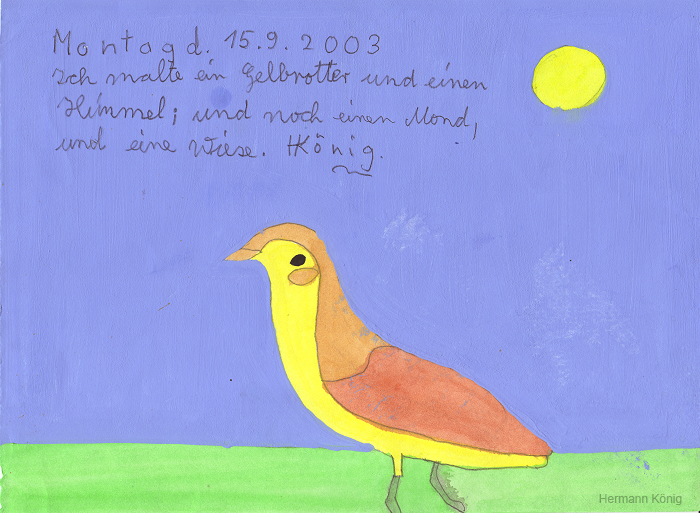 Montag d. 15.9.2003
Ich malte ein Gelbrotter und einen
Himmel; und noch einen Mond,
und eine Wiese. HKönig.
Hermann König